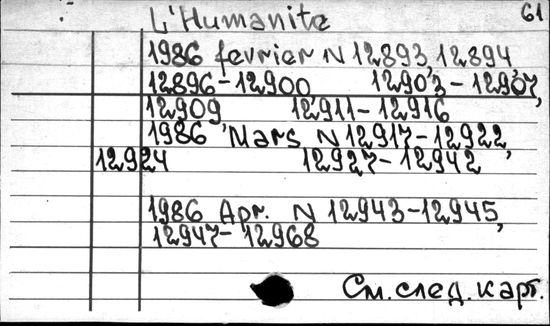 61
L'Humanite
1986 fevrier N 12893, 12894
12896-12900 12903-12907,
12909 12911-12916
1986 Mars N 12917-12922,
12924 12927-12942
1986 Apr. N 12943-12945,
12947-12968
См. след. карт.